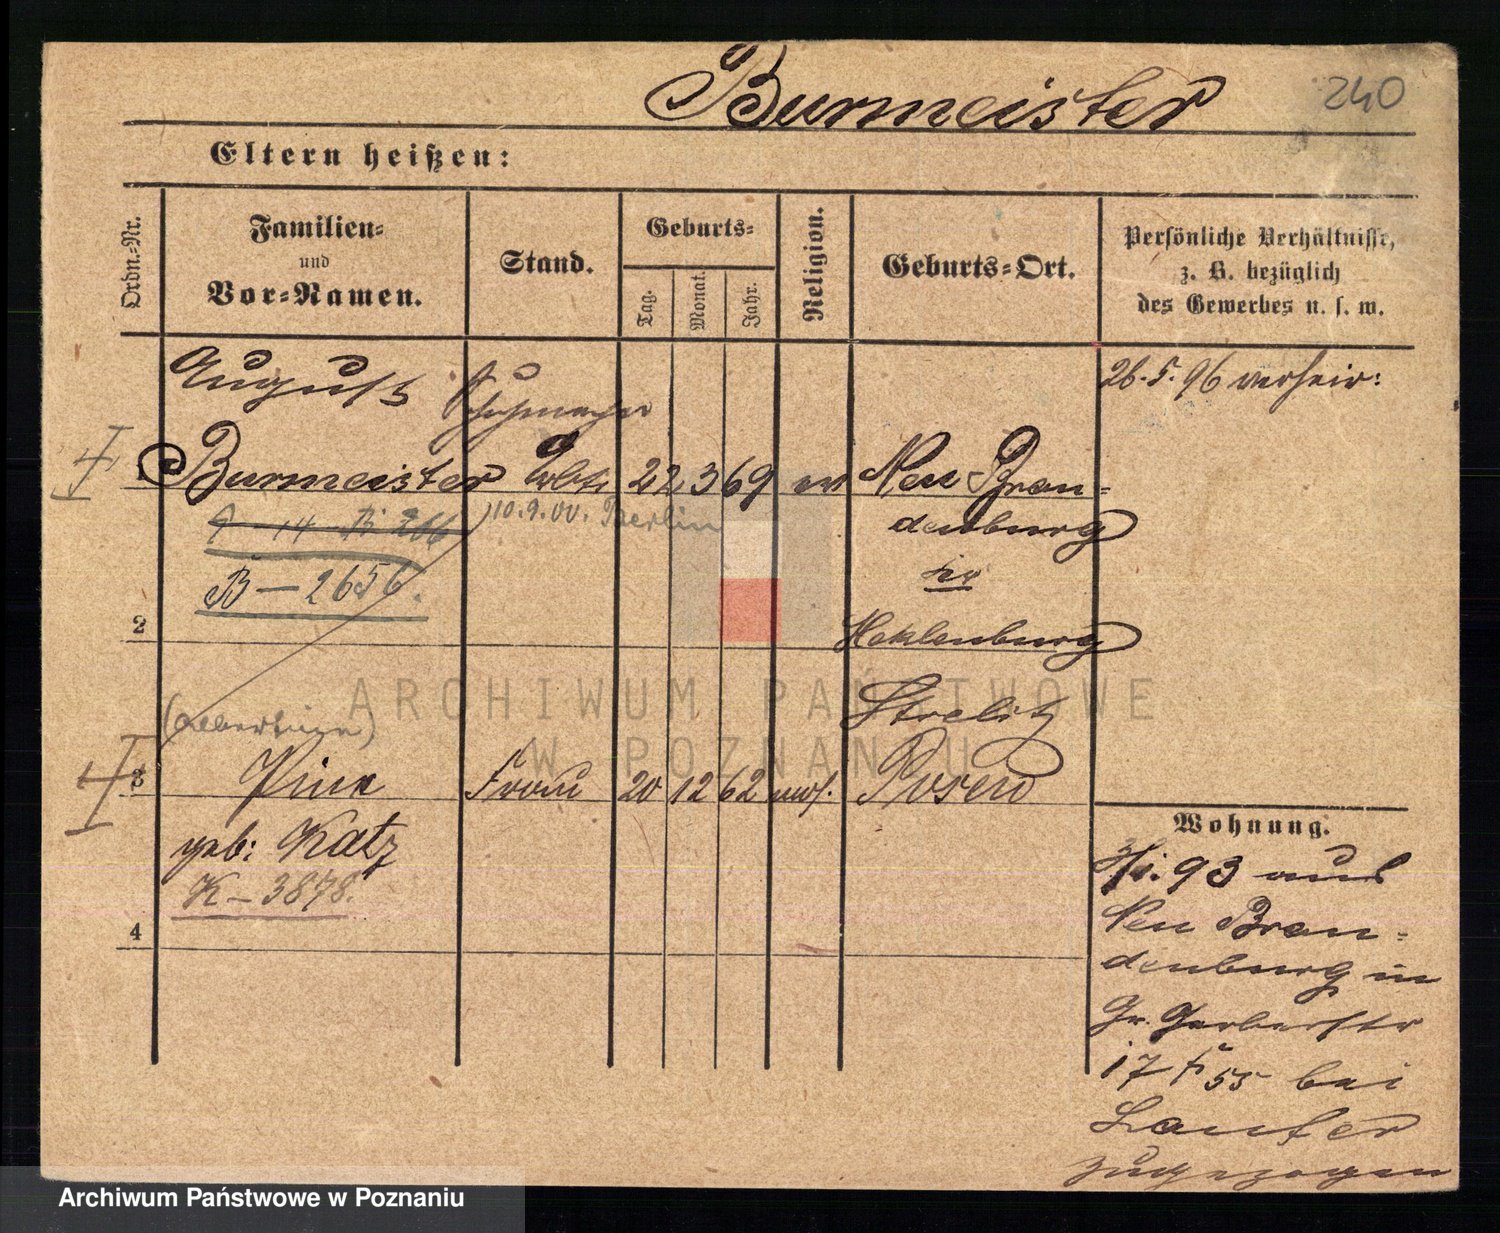 Burmeister
240
Eltern heißen:
Ordn.-Nr.
Familien-
und
Vor-Namen.
Stand.
Geburts-
Tag.
Monat.
Jahr.
Religion.
Geburts-Ort.
Persönliche Verhältnisse,
z. B. bezüglich
des Gewerbes u. s. w.
August
Schuhmacher
26.5.96 verheir:
Burmeister Arbtr 22 3 69 ev Neu Bran-
10.9.00. Berlin
denburg
B — 2656.
2
Meklenburg
Strelitz
(Albertine)
3
Pine Frau 20 12 62 mos. Posen
geb: Katz
K — 3878.
4
Wohnung.
93 aus
Neu Bran-
denburg in
Gr. Gerberstr
17 F 55 bei
Laufer
zugezogen
ARCHIWUM PAŃSTWOWE
W POZNANIU
Archiwum Państwowe w Poznaniu